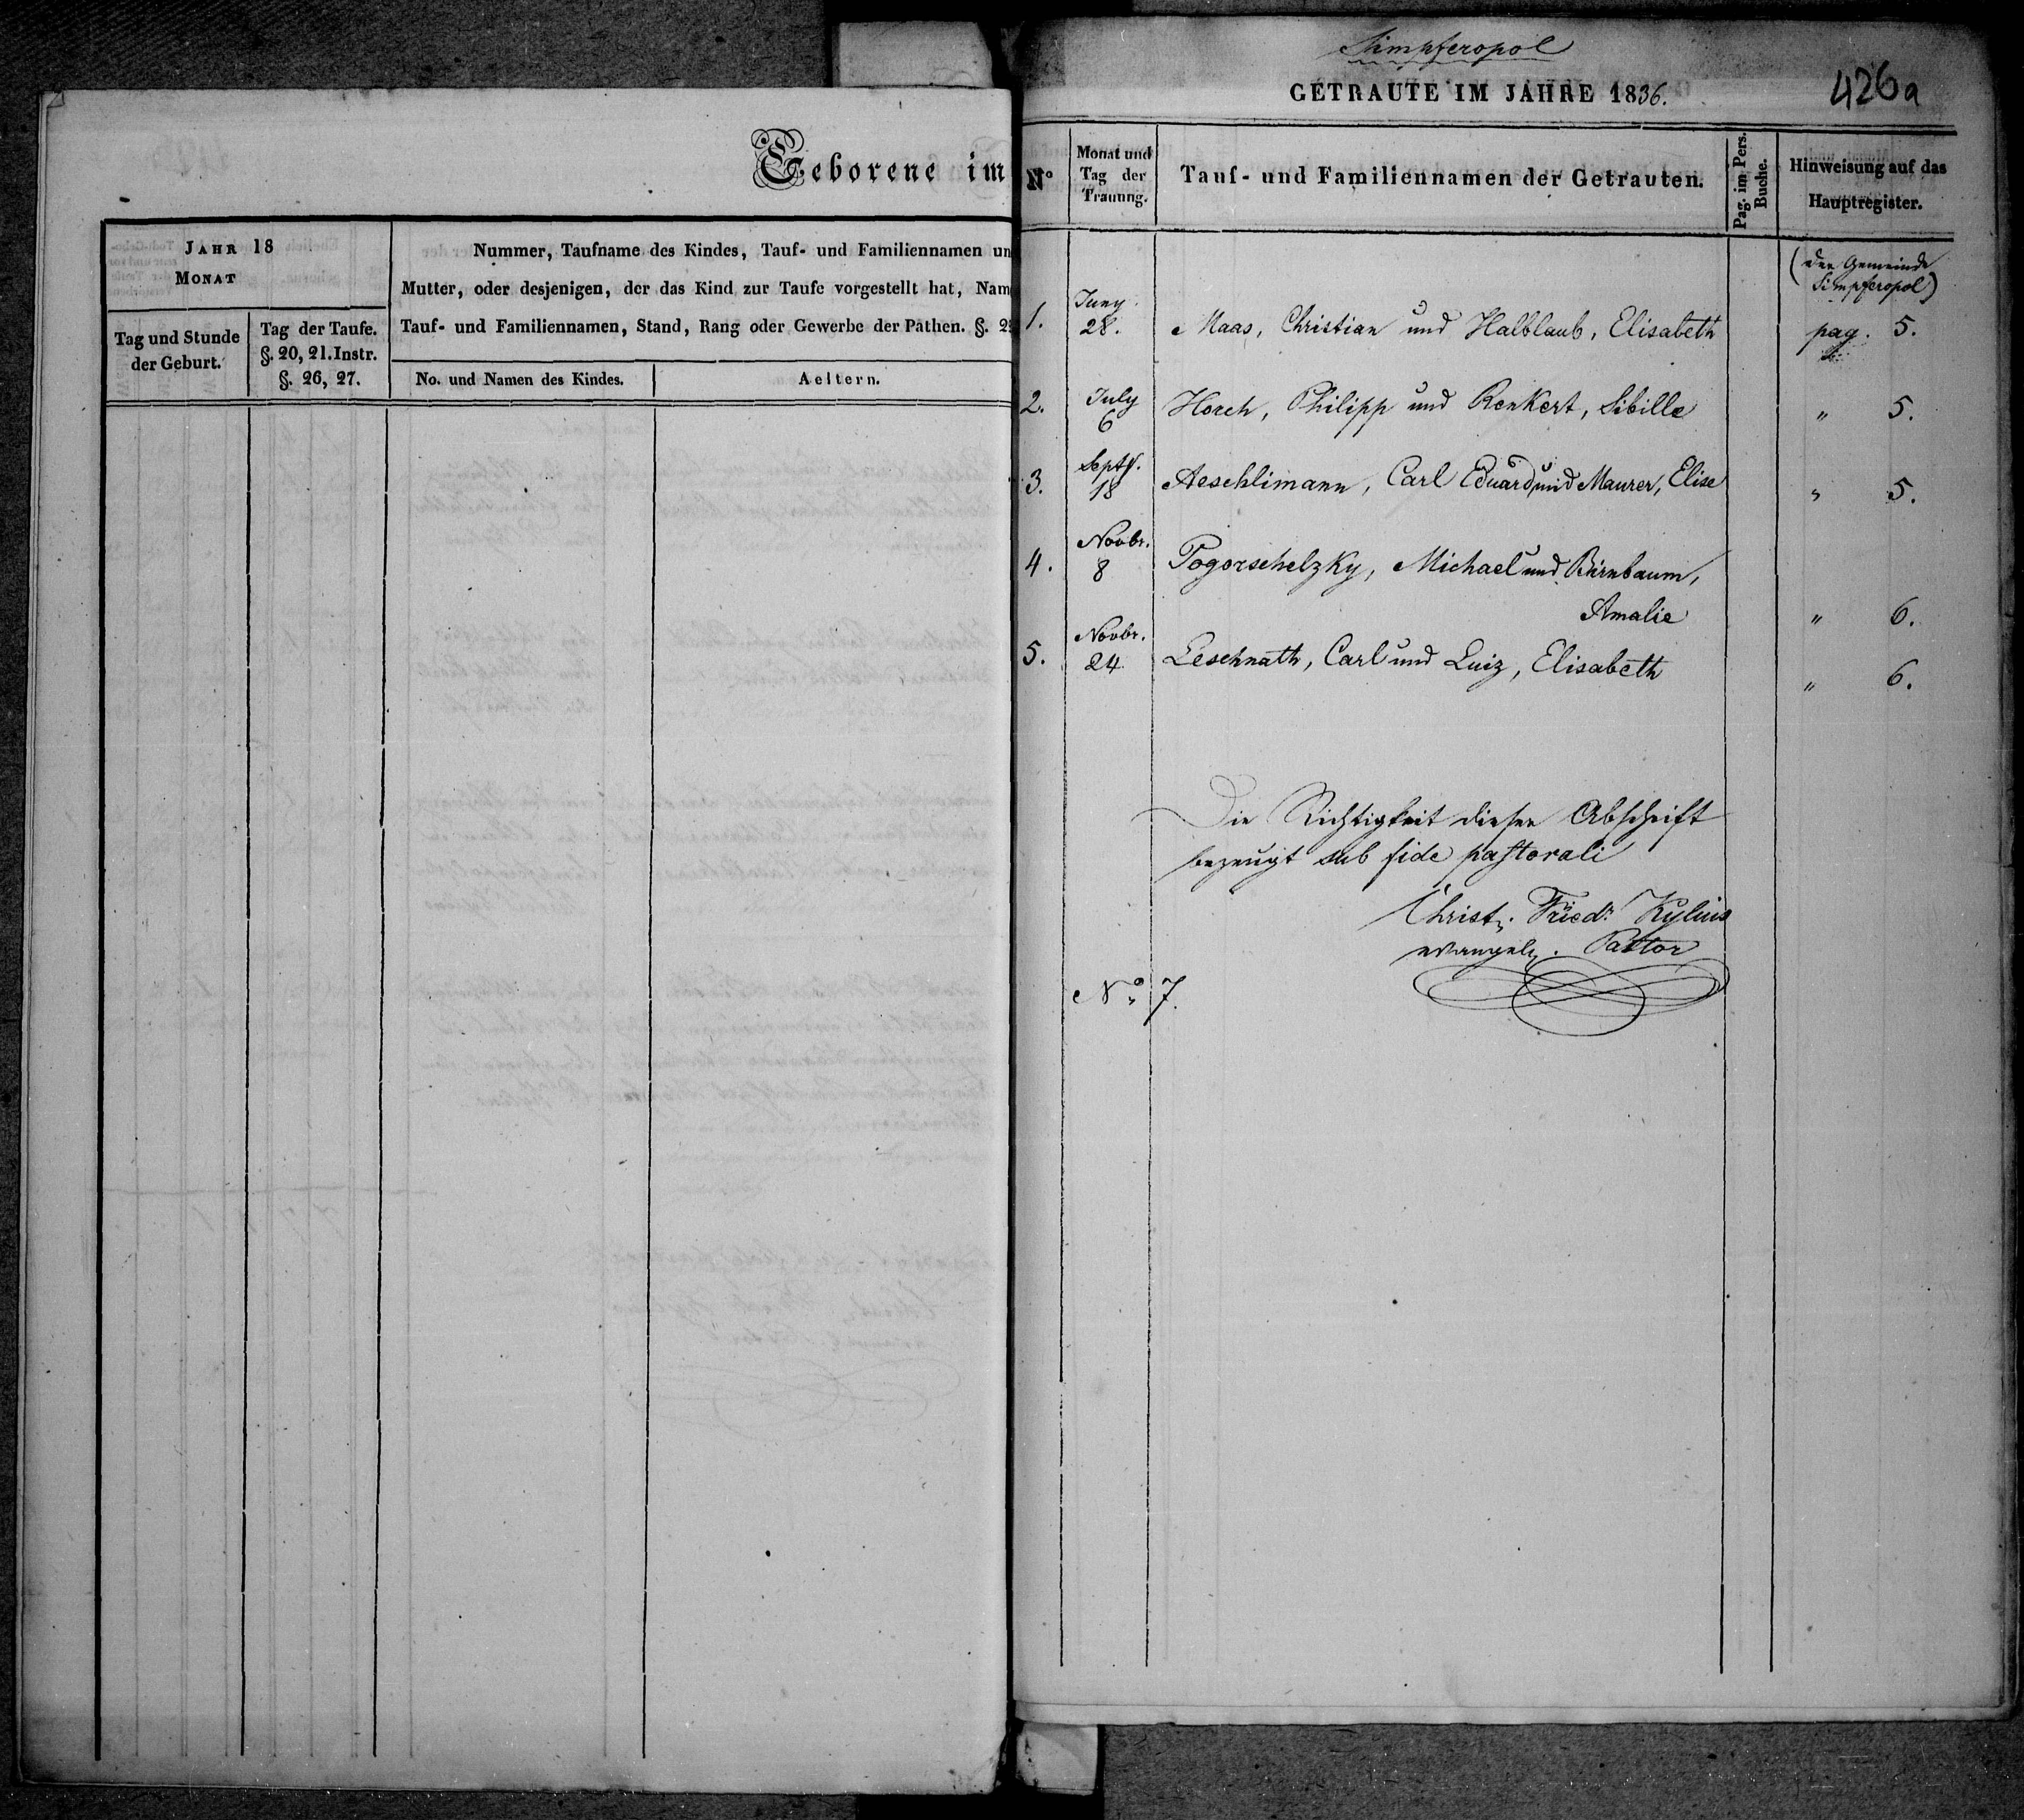 Geborene im
JAHR 18
MONAT
Tag und Stunde
der Geburt.
Tag der Taufe.
§. 20, 21. Instr.
§. 26, 27.
Nummer, Taufname des Kindes, Tauf- und Familiennamen un
Mutter, oder desjenigen, der das Kind zur Taufe vorgestellt hat, Nam
Tauf- und Familiennamen, Stand, Rang oder Gewerbe der Pathen. §. 2
No. und Namen des Kindes.
Aeltern.
Simpferopol
GETRAUTE IM JAHRE 1836.
426a
No
Monat und
Tag der
Trauung.
Tauf- und Familiennamen der Getrauten.
Pag. im Pers.
Buche.
Hinweisung auf das
Hauptregister.
(der Gemeinde
Simpferopol)
1. Juny 28. Maas, Christian und Halblaub, Elisabeth pag. 5.
2. July 6 Horch, Philipp und Renkert, Sibille " 5.
3. Septb. 18 Aeschlimann, Carl Eduard und Maurer, Elise " 5.
4. Novbr. 8 Pogorschelzky, Michael und Birnbaum,
Amalie " 6.
5. Novbr. 24 Leschnath, Carl und Luiz, Elisabeth " 6.
Die Richtigkeit dieser Abschrift
bezeugt sub fide pastorali
Christ. Friedr. Kylius
evangel. Pastor
No. 7.